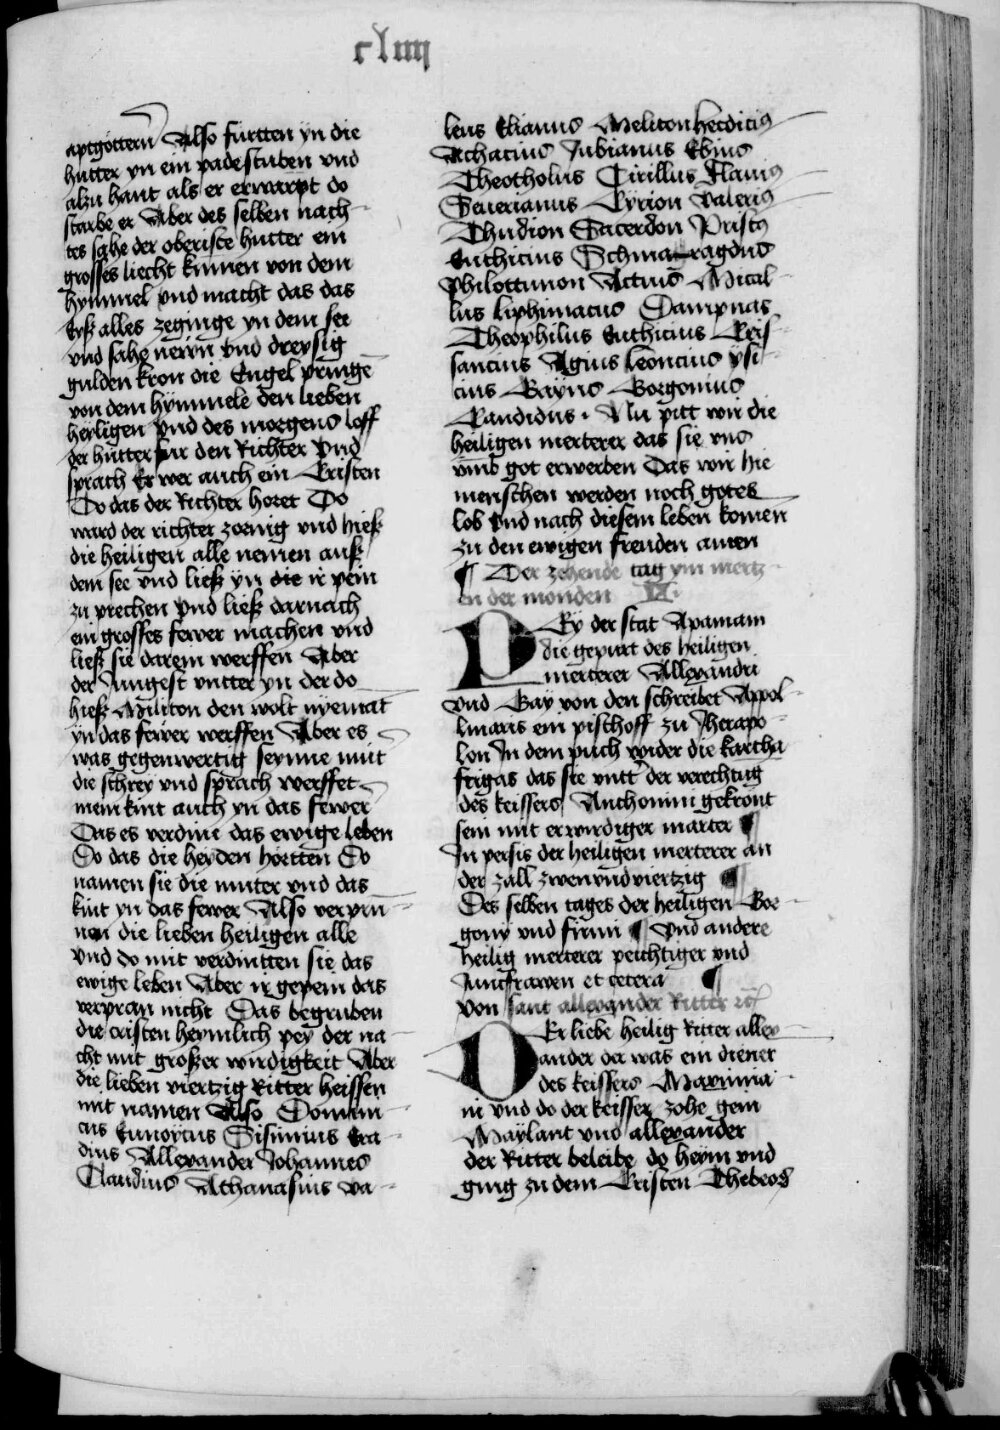 cliiij
aptgöttern Also fürtten yn die
hutter yn ein padestuben vnd
alzu hant als er erwarpt do
starbe er Aber des selben nach-
tes sahe der oberiste hutter ein
grosses liecht kumen von dem
hymmel vnd macht das das
Eyß alles zeginge yn dem see
vnd sahe newn vnd dreysig
gulden kron die Engel pringē
von dem hymmele den lieben
heiligen vnd des morgens loff
der hutter fur den Richter vnd
sprach Er wer auch ein Cristen
Do das der Richter horet Do
ward der richter zornig vnd hieß
die heiligen alle nemen auß
dem see vnd ließ yn die ir pein
zu prechen vnd ließ darnach
ein grosses fewer machen vnd
ließ sie darein werffen Aber
der Jungest vntter yn der do
hieß Militon den wolt nyemāt
yn das fewer werffen Aber es
was gegenwertig seynne mut
die schrey vnd sprach werffet
mein kint auch yn das fewer
Das es verdine das ewige leben
Do das die heyden hortten Do
namen sie die muter vnd das
kint yn das fewer Also verprū-
nen die lieben heiligen alle
vnd do mit verdintten sie das
ewige leben Aber ir gepein das
verpran nicht Das begruben
die cristen heymlich pey der na-
cht mit großer wirdigkeit Aber
die lieben viertzig Ritter heissen
mit namen Also Domini-
cus Eunoycus Sisinius Era-
dius Allexander Johannes
Claudius Athanasius va-
lens Elianus Meliton herdicius
Achacius Jubianus Ebius
Theotholus Cirillus Flauius
Seuerianus Cyrion Valerius
Thudion Sacerdon Priscus
Euthicius Schmaragdus
Philottimon Actius Mical-
lus liphimacus Dampnas
Theophilus Euthicius Cris-
sancius Agius leoncius ysi-
cius Gayus Gorgonius
Candidus. Nu pitt wir die
heiligen merterer das sie vns
vmb got erwerben Das wir hie
menschen werden noch gotes
lob vnd nach diesem leben komen
zu den ewigen freuden amen
¶ Der zehende tag ym mertz-
en der monden VI.
Ey der stat Apamam
die gepurt des heiligen
merterer Allexandri
vnd Gay von den schreibet Appol-
linaris ein pischoff zu Jherapo-
lon Jn dem puch wider die kartha
frigas das sie vntter der verechtug
des keissers Anthonini gekront
sein mit erwirdiger marter ¶
Jn persis der heiligen merterer an
der zall zwenvndviertzig ¶
Des selben tages der heiligen Gor-
gony vnd firmi ¶ vnd andere
heilig merterer peichtiger vnd
Junckfrawen et cetera ¶
von sant allexander Ritter etc
DEr liebe heilig Ritter allex-
ander der was ein diener
des keissers Maximia-
ni vnd do der keisser zohe gein
Maylant vnd allexander
der Ritter beleibe do heym vnd
ging zu dem Cristen Thebeos